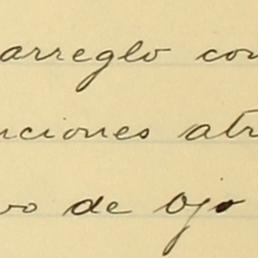 arreglo con
nciones atr
vo de Ojo